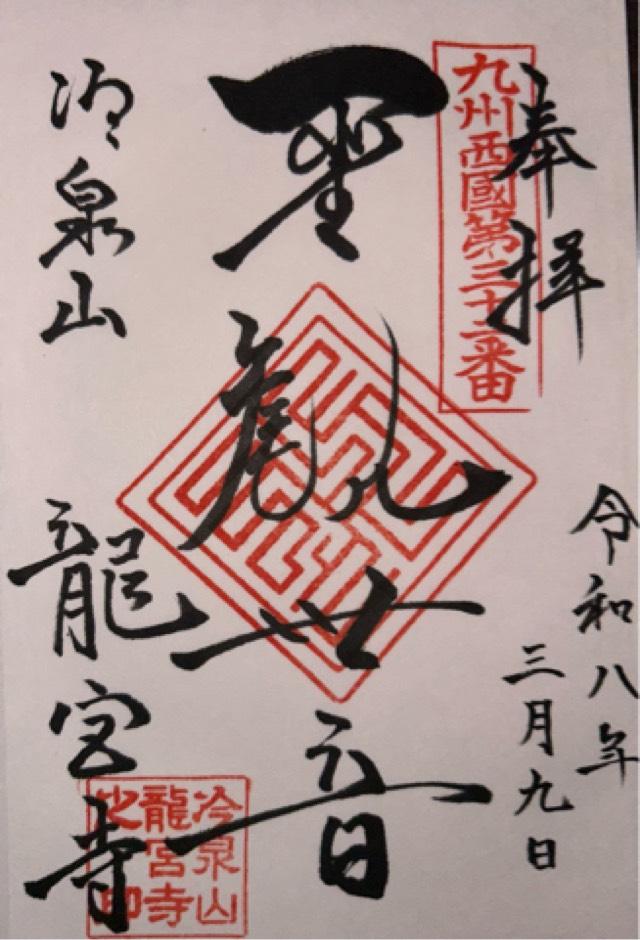 奉拝
九州西國第三十二番
令和八年
三月九日
聖觀世音
冷泉山
龍宮寺
冷泉山
龍宮寺
之印